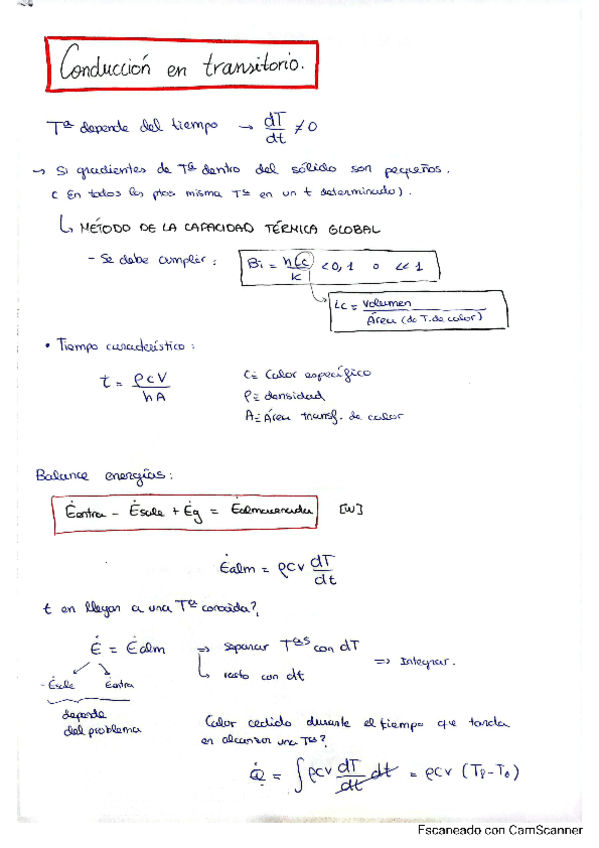 Conducción en transitorio.
Tª depende del tiempo → dT/dt ≠ 0
→ Si gradientes de Tª dentro del sólido son pequeños.
( En todos los ptos misma Tª en un t determinado).
↳ MÉTODO DE LA CAPACIDAD TÉRMICA GLOBAL
- Se debe cumplir: Bi = hLc/K < 0,1 o << 1
Lc = Volumen/Área (de T. de calor)
• Tiempo característico:
t = ρcV/hA
C ≡ Calor específico
ρ ≡ densidad
A ≡ Área transf. de calor
Balance energías:
Ėentra - Ėsale + Ėg = Ėalmacenada [W]
Ėalm = ρcv dT/dt
t en llegar a una Tª conocida?
Ė = Ėalm ⇒ separar Tªs con dT
↳ resto con dt
⇒ Integrar.
-Ėsale Ėentra
depende
del problema
Calor cedido durante el tiempo que tarda
en alcanzar una Tª?
Q̇ = ∫ρcv dT/dt dt = ρcv (Tf-T0)
Escaneado con CamScanner